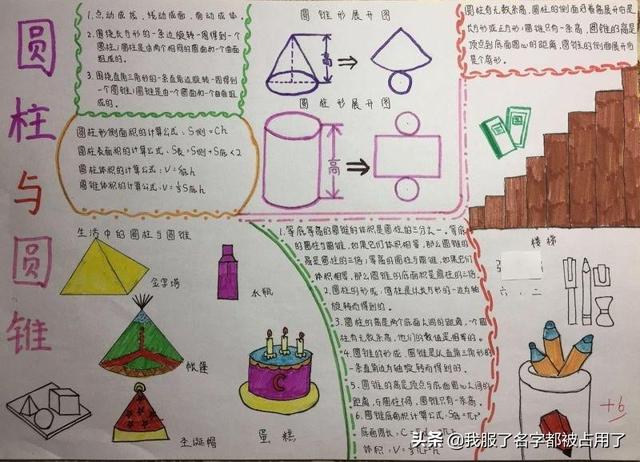 圆柱与圆锥
1.点动成线，线动成面，面动成体。
2.圆绕长方形的一条边旋转一周得到一个
圆柱，圆柱是由两个相同的圆面和一个曲面
组成的。
3.圆绕直角三角形的一条直角边旋转一周得到
一个圆锥，圆锥是由一个圆面和一个曲面组
成的。
圆柱形侧面积的计算公式：S侧=Ch
圆柱表面积的计算公式：S表=S侧+S底×2
圆柱体积的计算公式：V=S底h
圆锥体积的计算公式：V=⅓S底h
圆锥形展开图
高
圆柱形展开图
高
圆柱有无数条高，圆柱的侧面沿着高展开后是
长方形或正方形，圆锥只有一条高，圆锥的高是
顶点到底面圆心的距离，圆锥的侧面展开后
是个扇形。
楼梯
六.二
生活中的圆柱与圆锥
金字塔
水瓶
帐篷
圣诞帽
蛋糕
C
1.等底等高的圆锥的体积是圆柱的三分之一。等底
的圆柱与圆锥，如果它们体积相等，那么圆锥的
高是圆柱的三倍；等高的圆柱与圆锥，如果它们
体积相等，那么圆锥的底面积是圆柱的三倍
2.圆柱的形成：圆柱是以长方形的一边为轴
旋转而得到的。
3.圆柱的高是两个底面之间的距离，一个圆
柱有无数条高，他们的数值是相等的。
4.圆锥的形成：圆锥是以直角三角形的
一条直角边为轴旋转而得到的。
5.圆锥的高是顶点与底面圆心之间的
距离，与圆柱不同，圆锥只有一条高。
6.圆锥底面积计算公式：S底=πr²
底面周长：C
体积：V=⅓πr²h
+6
头条 @我服了名字都被占用了